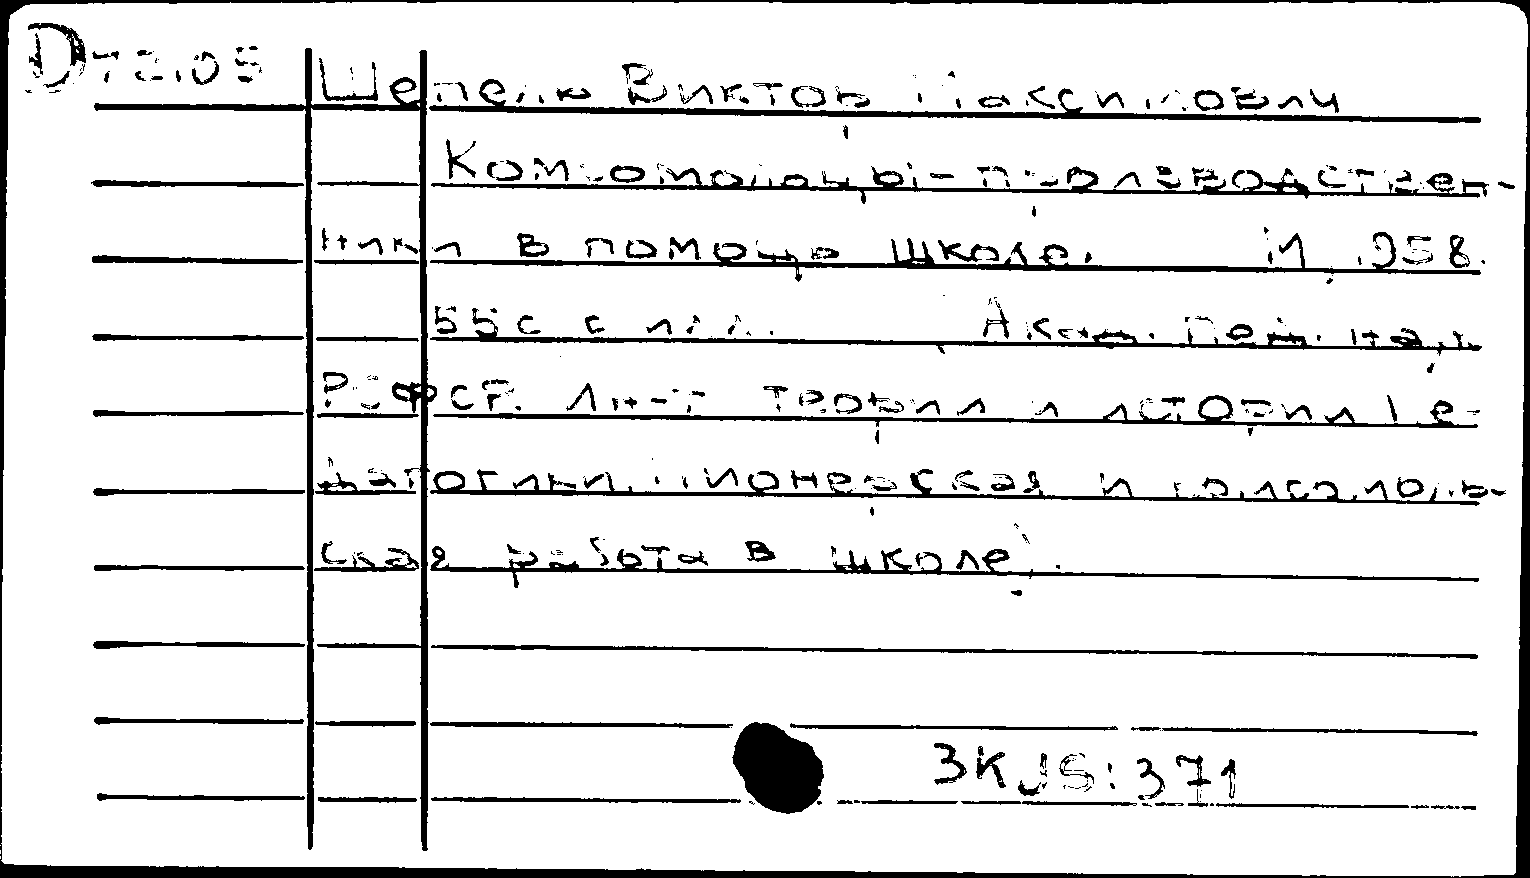 Шепель Виктор Максимович
Комсомольцы-производствен-
ники в помощь школе. М 1958.
55с с илл. Акад. пед. наук
РСФСР. Ин-т теории и истории пе-
дагогики. Пионерская и комсомоль-
ская работа в школе).
3KJS:371